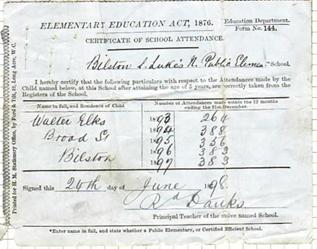 ELEMENTARY EDUCATION ACT, 1876.
Education Department.
Form No. 144.
CERTIFICATE OF SCHOOL ATTENDANCE.
Bilston S. Luke's N. Public Elemen School.
I hereby certify that the following particulars with respect to the Attendances made by the
Child named below, at this School after attaining the age of 5 years, are correctly taken from the
Registers of the School.
Name in full, and Residence of Child
Number of Attendances made within the 12 months
ending the 31st December.
Walter Elks 1893 264
Broad St 1894 388
1895 356
Bilston 1896 383
1897 383
Signed this 24th day of June 1898.
R Danks
Principal Teacher of the above named School.
*Enter name in full, and state whether a Public Elementary, or Certified Efficient School.